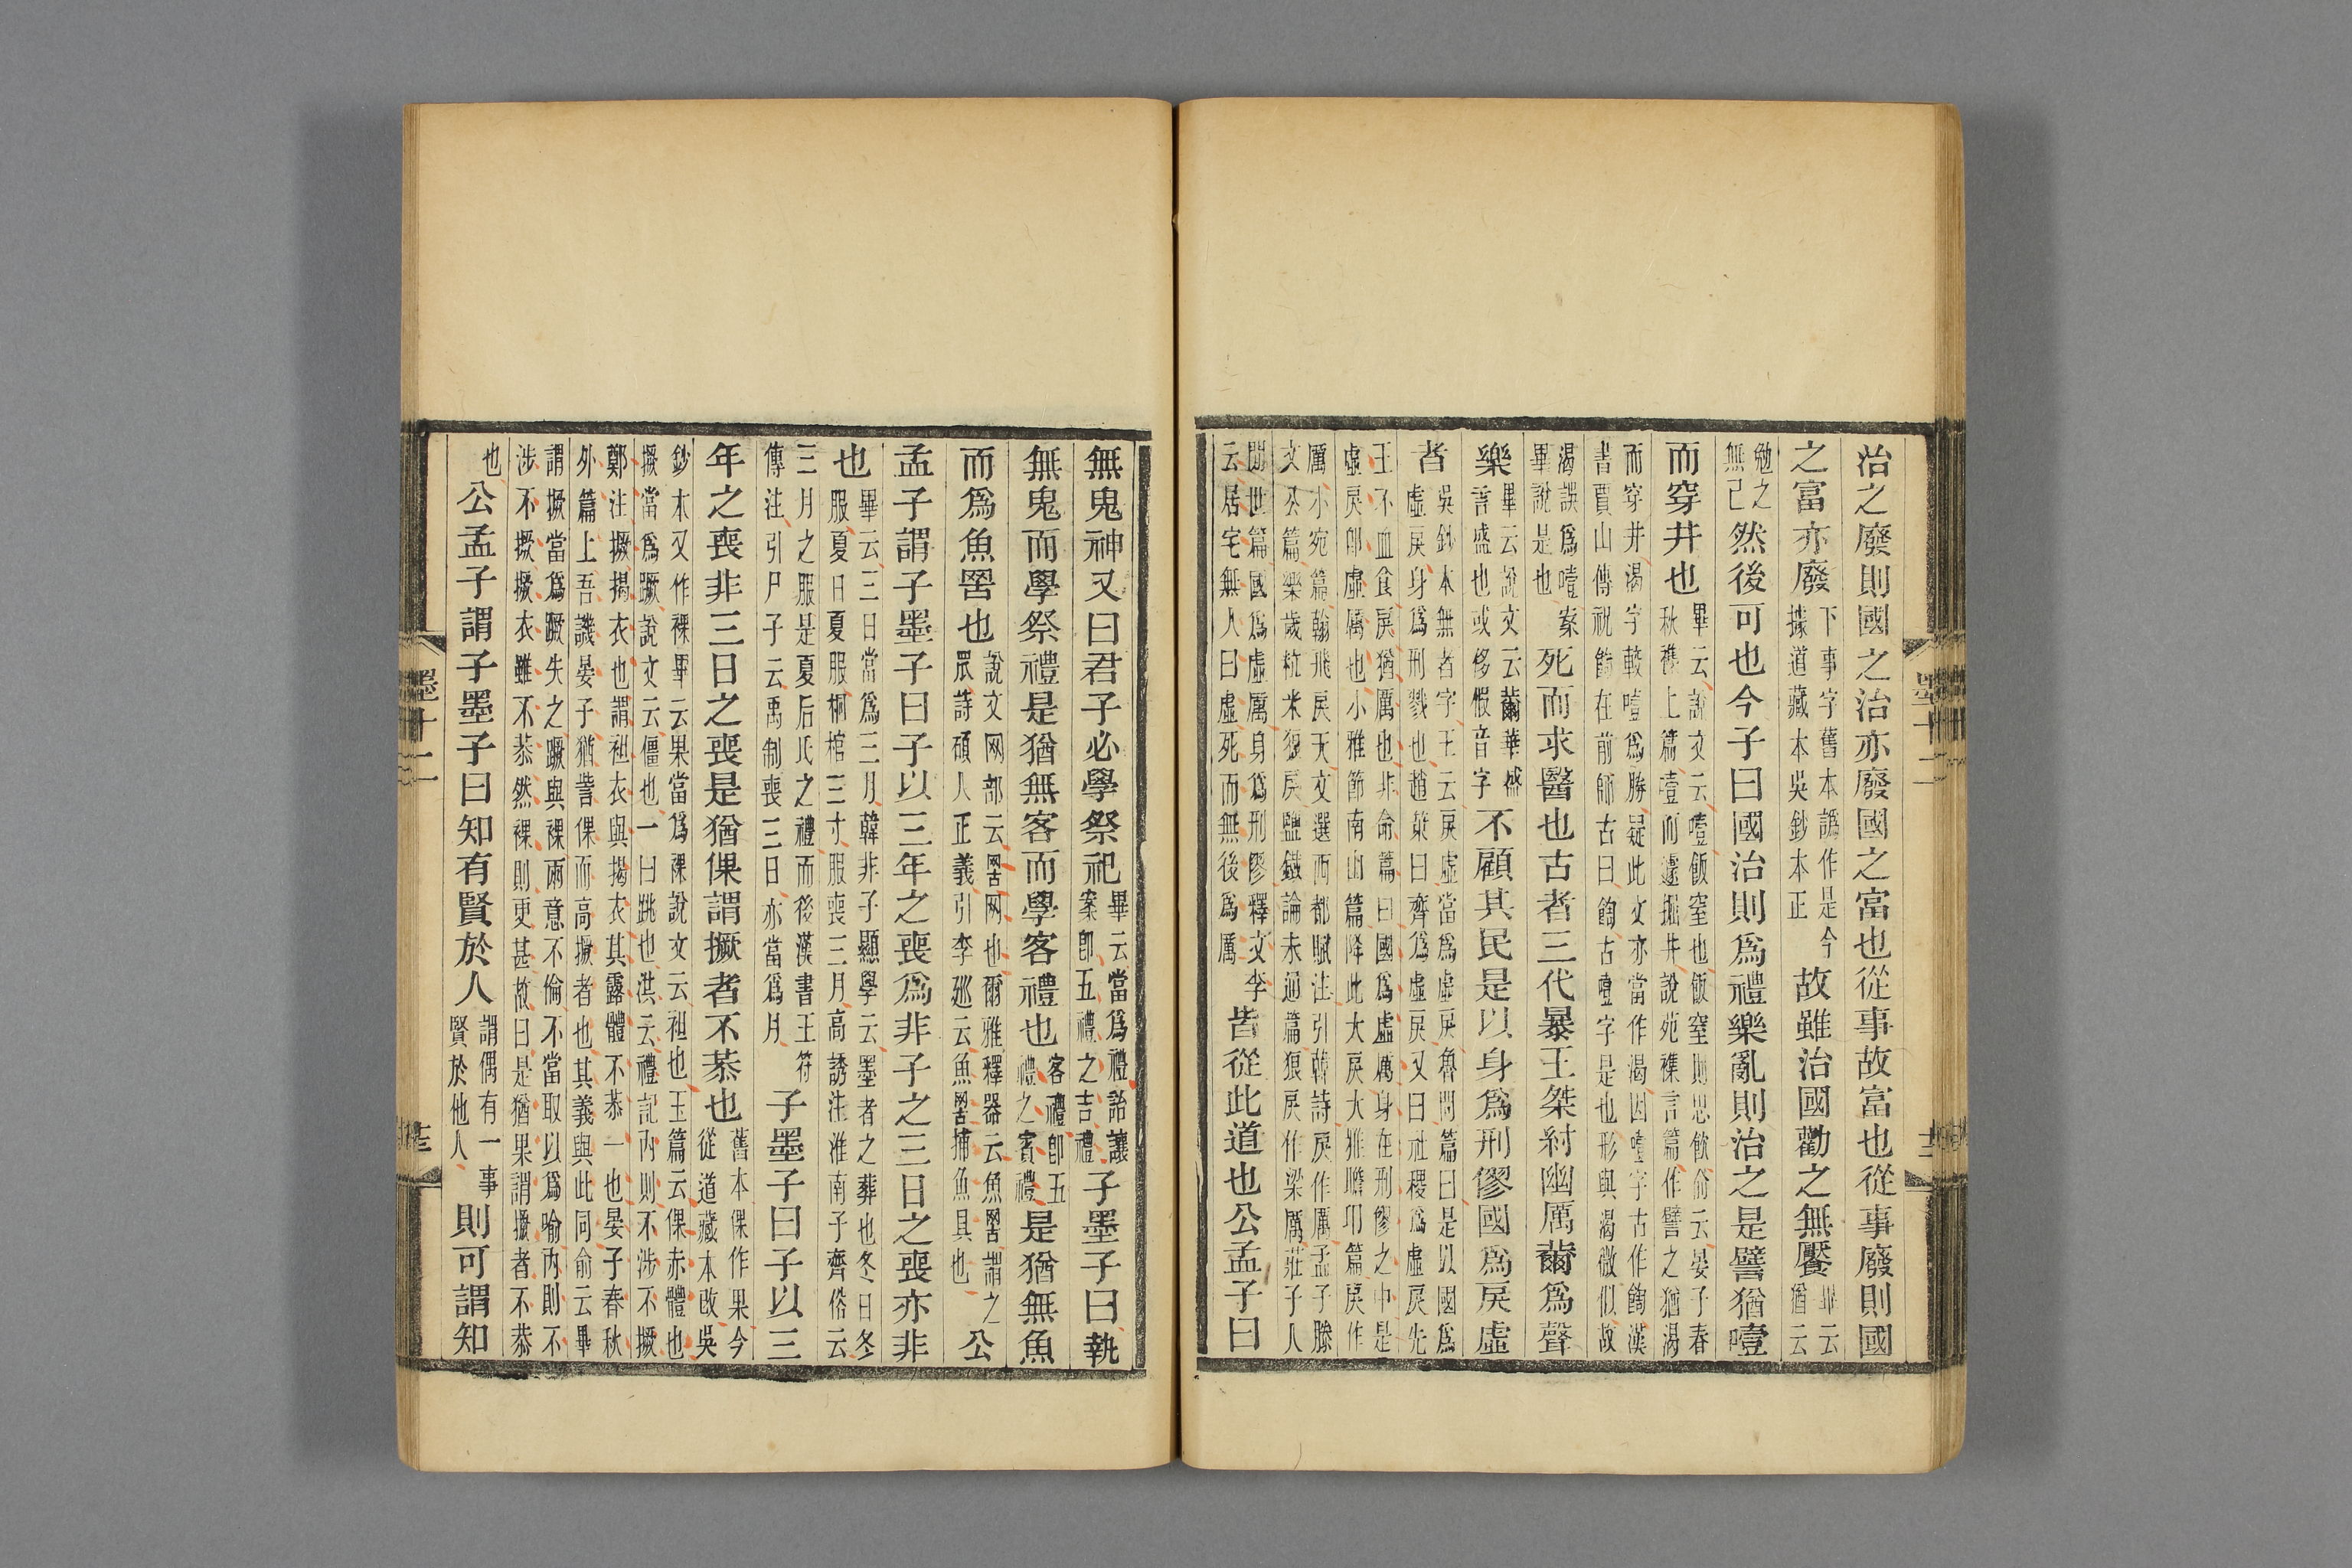 治之廢則國之治亦廢國之富也從事故富也從事廢則國
之富亦廢下事字舊本譌作是今據道藏本吳鈔本正故雖治國勸之無饜畢云猶云
勉之無已然後可也今子曰國治則爲禮樂亂則治之是譬猶噎
而穿井也畢云說文云噎飯窒也飯窒則思飲俞云晏子春秋襍上篇噎而遽掘井說苑襍言篇作譬之猶渴
而穿井渴字較噎爲勝疑此文亦當作渴因噎字古作䭇漢書賈山傳祝䭇在前師古曰䭇古噎字是也形與渴微似故
渴誤爲噎案畢說是也死而求醫也古者三代暴王桀紂幽厲薾爲聲
樂畢云說文云薾華盛言盛也或侈假音字不顧其民是以身爲刑僇國爲戾虛
者吳鈔本無者字王云戾虛當爲虛戾魯問篇曰是以國爲虛戾身爲刑戮也趙策曰齊爲虛戾又曰社稷爲虛戾先
王不血食戾猶厲也非命篇曰國爲虛厲身在刑僇之中是虛戾卽虛厲也小雅節南山篇降此大戾大雅瞻卬篇戾作
厲小宛篇翰飛戾天文選西都賦注引韓詩戾作厲孟子滕文公篇樂歲粒米狼戾鹽鐵論未通篇狼戾作梁厲莊子人
閒世篇國爲虛厲身爲刑僇釋文李云居宅無人曰虛死而無後爲厲皆從此道也公孟子曰
墨十二
十二
無鬼神又曰君子必學祭祀畢云當爲禮詒讓案卽五禮之吉禮子墨子曰執
無鬼而學祭禮是猶無客而學客禮也客禮卽五禮之賓禮是猶無魚
而爲魚罟也說文网部云罟网也爾雅釋器云魚罟謂之罛詩碩人正義引李巡云魚罟捕魚具也公
孟子謂子墨子曰子以三年之喪爲非子之三日之喪亦非
也畢云三日當爲三月韓非子顯學云墨者之葬也冬日冬服夏日夏服桐棺三寸服喪三月高誘注淮南子齊俗云
三月之服是夏后氏之禮而後漢書王符傳注引尸子云禹制喪三日亦當爲月子墨子曰子以三
年之喪非三日之喪是猶倮謂撅者不恭也舊本倮作果今從道藏本改吳
鈔本又作裸畢云果當爲裸說文云袒也玉篇云倮赤體也撅當爲蹶說文云僵也一曰跳也洪云禮記內則不涉不撅
鄭注撅揭衣也謂袒衣與揭衣其露體不恭一也晏子春秋外篇上吾譏晏子猶訾倮而高撅者也其義與此同俞云畢
謂撅當爲蹶失之蹶與裸兩意不倫不當取以爲喻內則不涉不撅撅衣雖不恭然裸則更甚故曰是猶果謂撅者不恭
也公孟子謂子墨子曰知有賢於人謂偶有一事賢於他人則可謂知
墨十二
十三